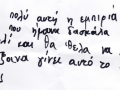 πολύ αυτή η εμπειρία
που ήμουνα δασκάλα
και θα ήθελα να
ξανα γίνει αυτό το